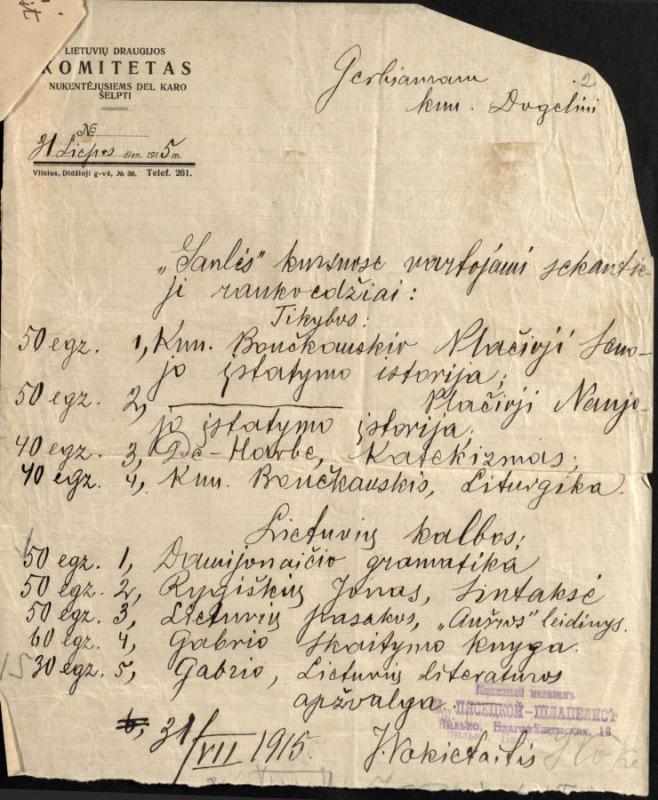 LIETUVIŲ DRAUGIJOS
KOMITETAS
NUKENTĖJUSIEMS DEL KARO
ŠELPTI
№
31 Liepos dien. 1915 m.
Vilnius, Didžioji g-vė, № 30. Telef. 261.
2
Gerbiamam
kun. Dogelini
„Saulės" kursuose vartojami sekantie-
ji rankvedžiai:
Tikybos:
50 egz. 1, Kun. Bončkauskio Plačioji Seno-
jo įstatymo istorija;
50 egz. 2, ——— Plačioji Naujo-
jo įstatymo įstorija,
40 egz. 3, De-Harbe, Katekizmas;
40 egz. 4, Kun. Bončkauskis, Liturgika.
Lietuvių kalbos;
50 egz. 1, Damijonaičio gramatika
50 egz. 2, Rygiškių Jonas, Sintaksė
50 egz. 3, Lietuvių pasakos, „Aušros" leidinys.
60 egz. 4, Gabrio Skaitymo knyga.
15 30 egz. 5, Gabrio, Lietuvių literatūros
apžvalga.
Книжный магазинъ
ПЯСЕЦКОЙ-ШЛАПЕЛИСТ
Вильно, Благовѣщенская, 13
31/VII 1915.
J. Vokietaitis